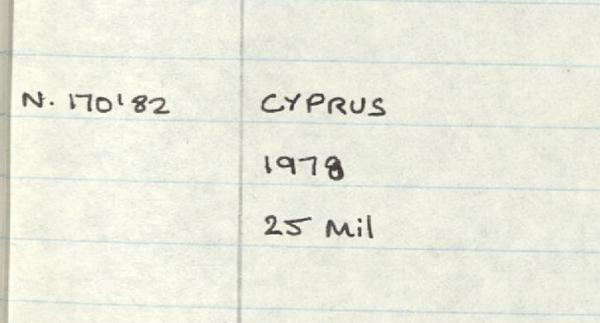 N. 170'82 CYPRUS
1978
25 Mil